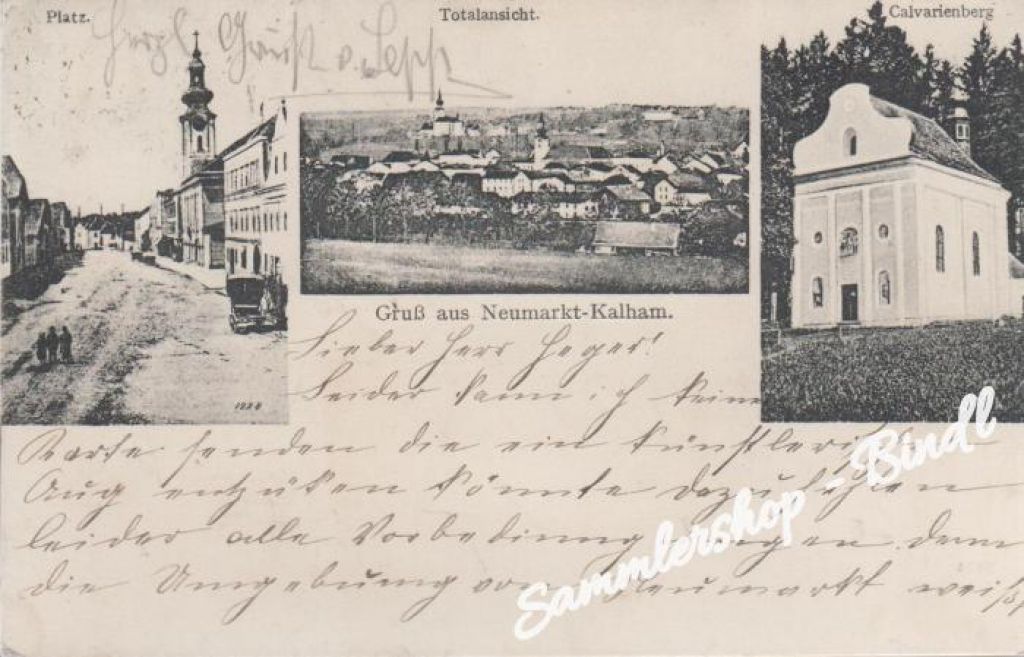 Platz.
Totalansicht.
Calvarienberg
Herzl. Gruß v. Sepp
Gruß aus Neumarkt-Kalham.
Lieber Herr Heger!
Leider kann ich keine
Karte senden die ein künstlerisch
Aug entzüken könnte dazu fehlen
leider alle Vorbedinungungen denn
die Umgebung von Neumarkt weißt
Sammlershop - Bindl